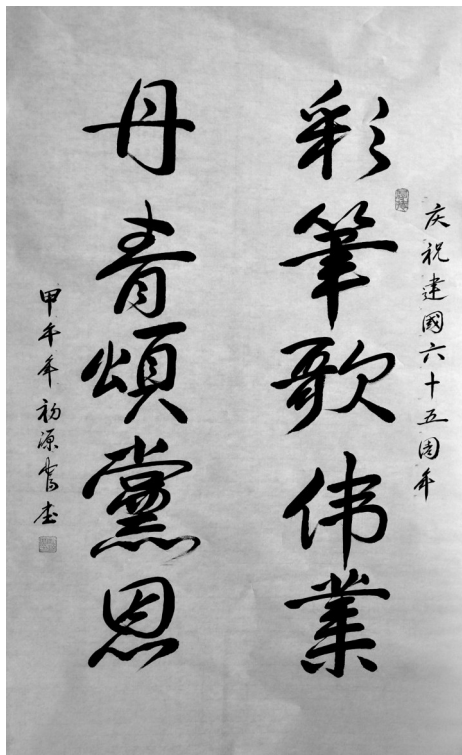 庆祝建國六十五周年
彩筆歌伟業
丹青頌黨恩
甲午年初源